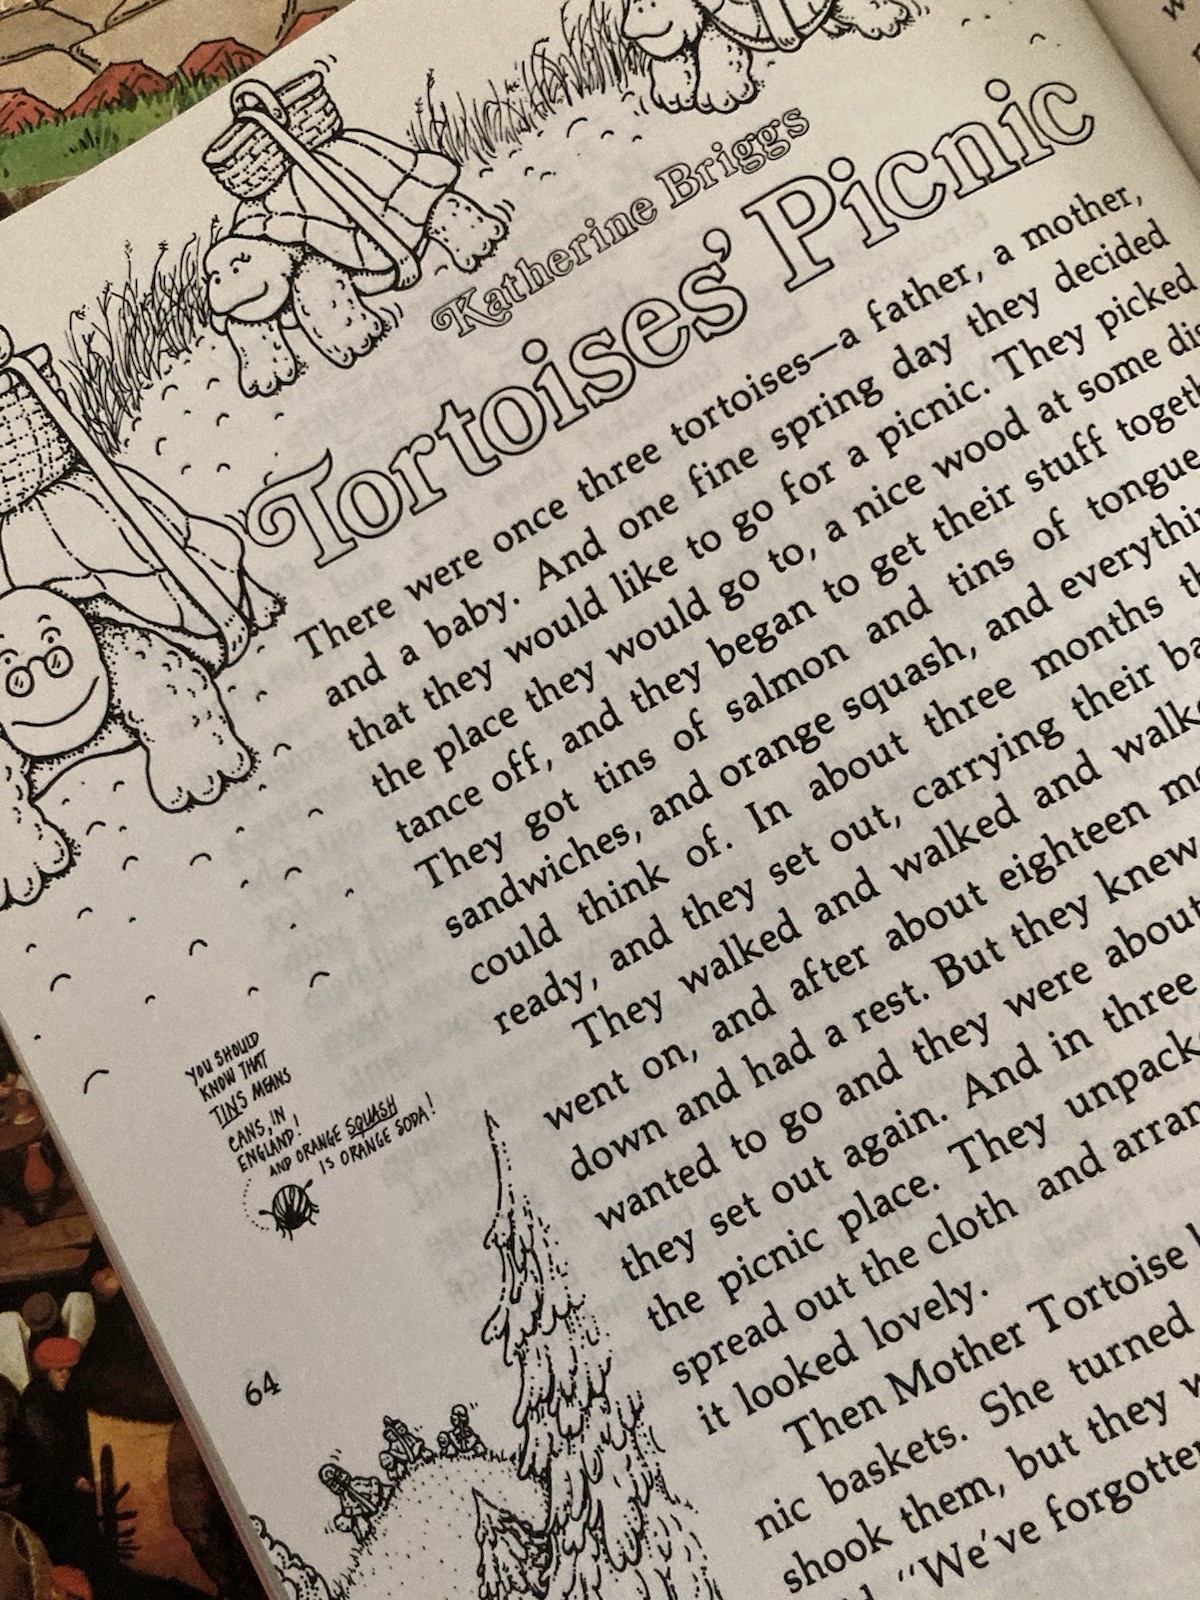 Katherine Briggs
Tortoises' Picnic
There were once three tortoises—a father, a mother,
and a baby. And one fine spring day they decided
that they would like to go for a picnic. They picked
the place they would go to, a nice wood at some dis
tance off, and they began to get their stuff togeth
They got tins of salmon and tins of tongue
sandwiches, and orange squash, and everythin
could think of. In about three months th
ready, and they set out, carrying their ba
They walked and walked and walke
went on, and after about eighteen mo
down and had a rest. But they knew
wanted to go and they were about
they set out again. And in three
the picnic place. They unpack
spread out the cloth and arran
it looked lovely.
Then Mother Tortoise l
nic baskets. She turned
shook them, but they w
"We've forgotten
YOU SHOULD
KNOW THAT
TINS MEANS
CANS, IN
ENGLAND!
AND ORANGE SQUASH
IS ORANGE SODA!
64